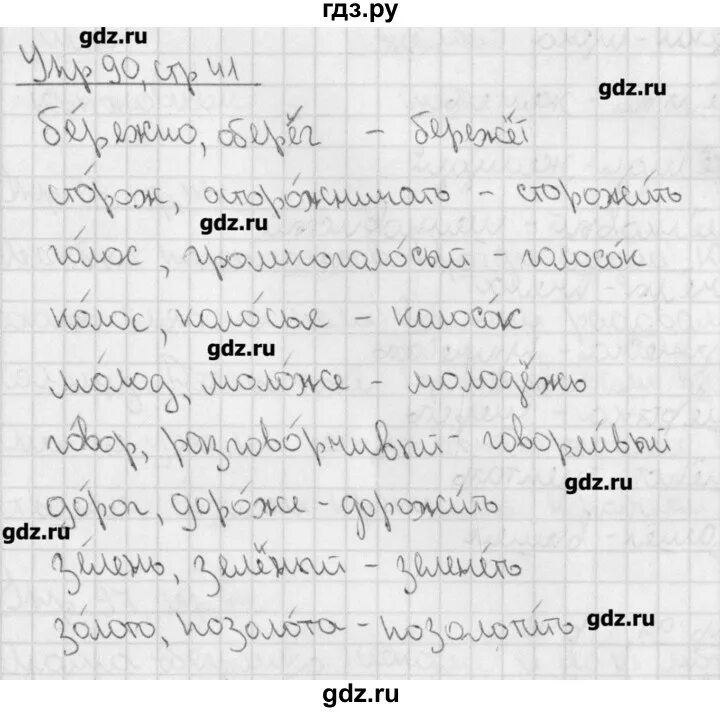 гдз.ру
gdz.ru
Упр 90, стр 41
gdz.ru
бе́режно, оберёг – бережёт
сто́рож, осторо́жничать – сторожи́ть
gdz.ru
го́лос, громкоголо́сый – голосо́к
ко́лос, коло́сья – колосо́к
gdz.ru
мо́лод, моло́же – молодёжь
го́вор, разгово́рчивый – говорли́вый
gdz.ru
до́рог, доро́же – дорожи́ть
gdz.ru
зе́лень, зелёный – зелене́ть
зо́лото, позоло́та – позолоти́ть
gdz.ru
gdz.ru